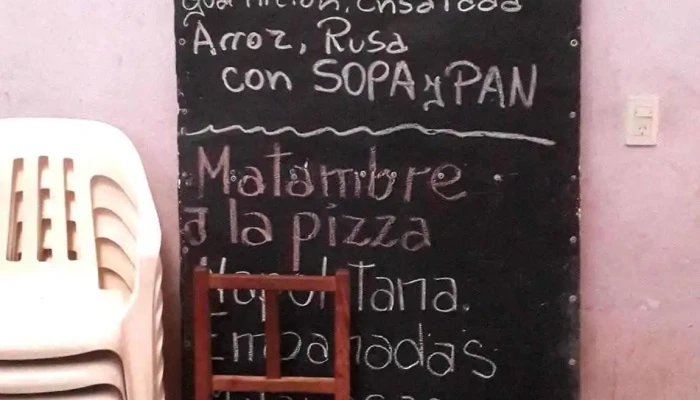 Guarnición, Ensalada
Arroz, Rusa
con SOPA y PAN
Matambre
a la pizza
Napolitana.
Empanadas